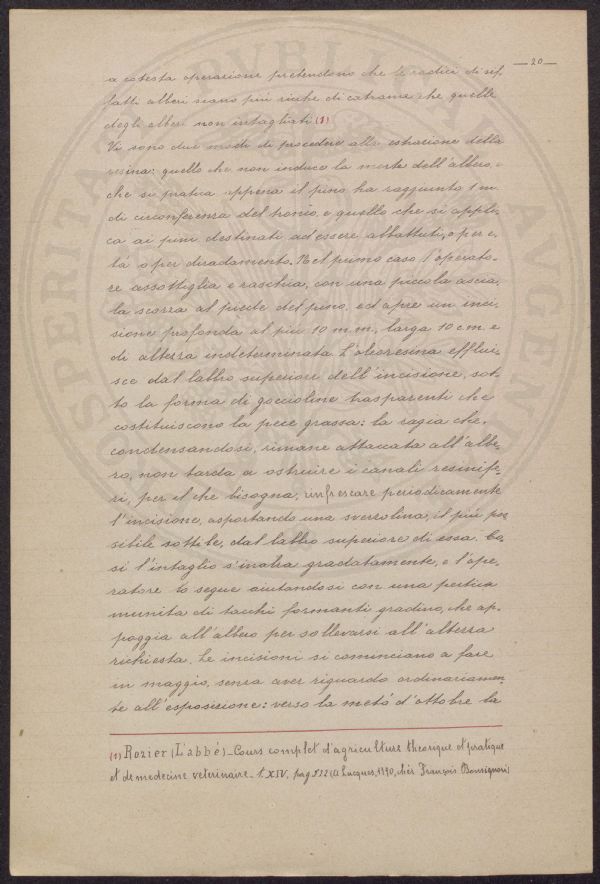 — 20 —
a cotesta operazione pretendono che le radici di sif,
fatti alberi siano più ricche di catrame che quelle
degli alberi non intagliati (1)
Vi sono due modi di procedere alla estrazione della
resina: quello che non induce la morte dell'albero, e
che si pratica appena il pino ha raggiunto 1 m.
di circonferenza del tronco, e quello che si appli,
ca ai pini destinati ad essere abbattuti, o per e,
tà o per diradamento. Nel primo caso l'operato,
re assottiglia e raschia, con una piccola ascia,
la scorza al piede del pino, ed apre un inci,
sione profonda al più 10 m.m., larga 10 c.m. e
di altezza indeterminata. L'oleoresina efflui,
sce dal labbro superiore dell'incisione, sot,
to la forma di goccioline trasparenti che
costituiscono la pece grassa: la ragia che,
condensandosi, rimane attaccata all'albe,
ro, non tarda a ostruire i canali resinife,
ri, per il che bisogna, rinfrescare periodicamente
l'incisione, asportando una sverzolina, il più pos
sibile sottile, dal labbro superiore di essa. Co,
si l'intaglio s'inalza gradatamente, e l'ope,
ratore lo segue aiutandosi con una pertica
munita di tacchi formanti gradino, che ap,
poggia all'albero per sollevarsi all'altezza
richiesta. Le incisioni si cominciano a fare
in maggio, senza aver riguardo ordinariamen
te all'esposizione: verso la metà d'ottobre la
(1) Rozier (L'abbé) _ Cours complet d'agriculture théorique et pratique
et de medecine veterinaire _ t. XIV, pag 512 (a Lucques, 1790, chès François Bonsignori)
PVBLICAE
AVGEN
OSPERITAT